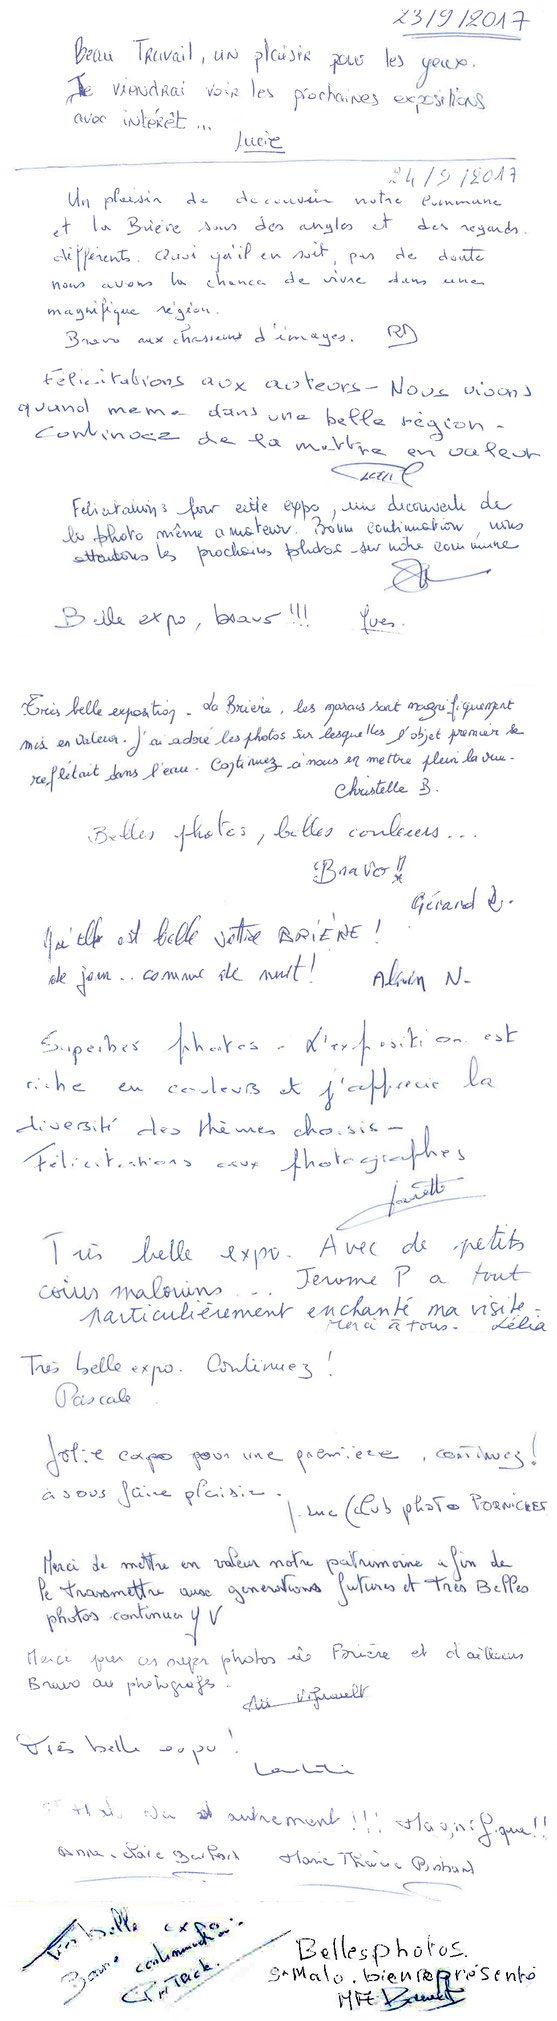 23/9/2017
Beau Travail, un plaisir pour les yeux.
Je viendrai voir les prochaines expositions
avec intérêt...
Lucie
24/9/2017
Un plaisir de découvrir notre Commune
et la Brière sous des angles et des regards
différents. Quoi qu'il en soit, pas de doute
nous avons la chance de vivre dans une
magnifique région.
Bravo aux chasseurs d'images.
Félicitations aux auteurs - Nous vivons
quand meme dans une belle région -
Continuez de la mettre en valeur
Félicitations pour cette expo, une découverte de
la photo même amateur. Bonne continuation, nous
attendons les prochaines photos sur notre commune
Belle expo, bravo !!! Yves.
Très belle exposition - La Brière, les marais sont magnifiquement
mis en valeur. J'ai adoré les photos sur lesquelles l'objet premier se
reflétait dans l'eau. Continuez à nous en mettre plein la vue.
Christelle B.
Belles photos, belles couleurs...
Bravo !!
Gérard
Qu'elle est belle votre BRIÈRE !
de jour... comme de nuit ! Alain N-
Superbes photos - L'exposition est
riche en couleurs et j'apprécie la
diversité des thèmes choisis -
Félicitations aux photographes
Très belle expo. Avec de petits
coins malouins... Jerome P a tout
particulièrement enchanté ma visite -
Merci à tous. Lélia
Très belle expo. Continuez !
Pascale
Jolie expo pour une première, continuez !
à vous faire plaisir.
J. Luc (Club photo PORNICHET
Merci de mettre en valeur notre patrimoine afin de
le transmettre aux generations futures et Très Belles
photos continuer Y V
Merci pour ces super photos de Brière et d'ailleurs
Bravo au photografs.
Très belle expo !
vu autrement !!! Magnifique !!
Marie Thérèse
Très belle expo
Bonne continuation
Patrick.
Belles photos.
St Malo. bien représenté